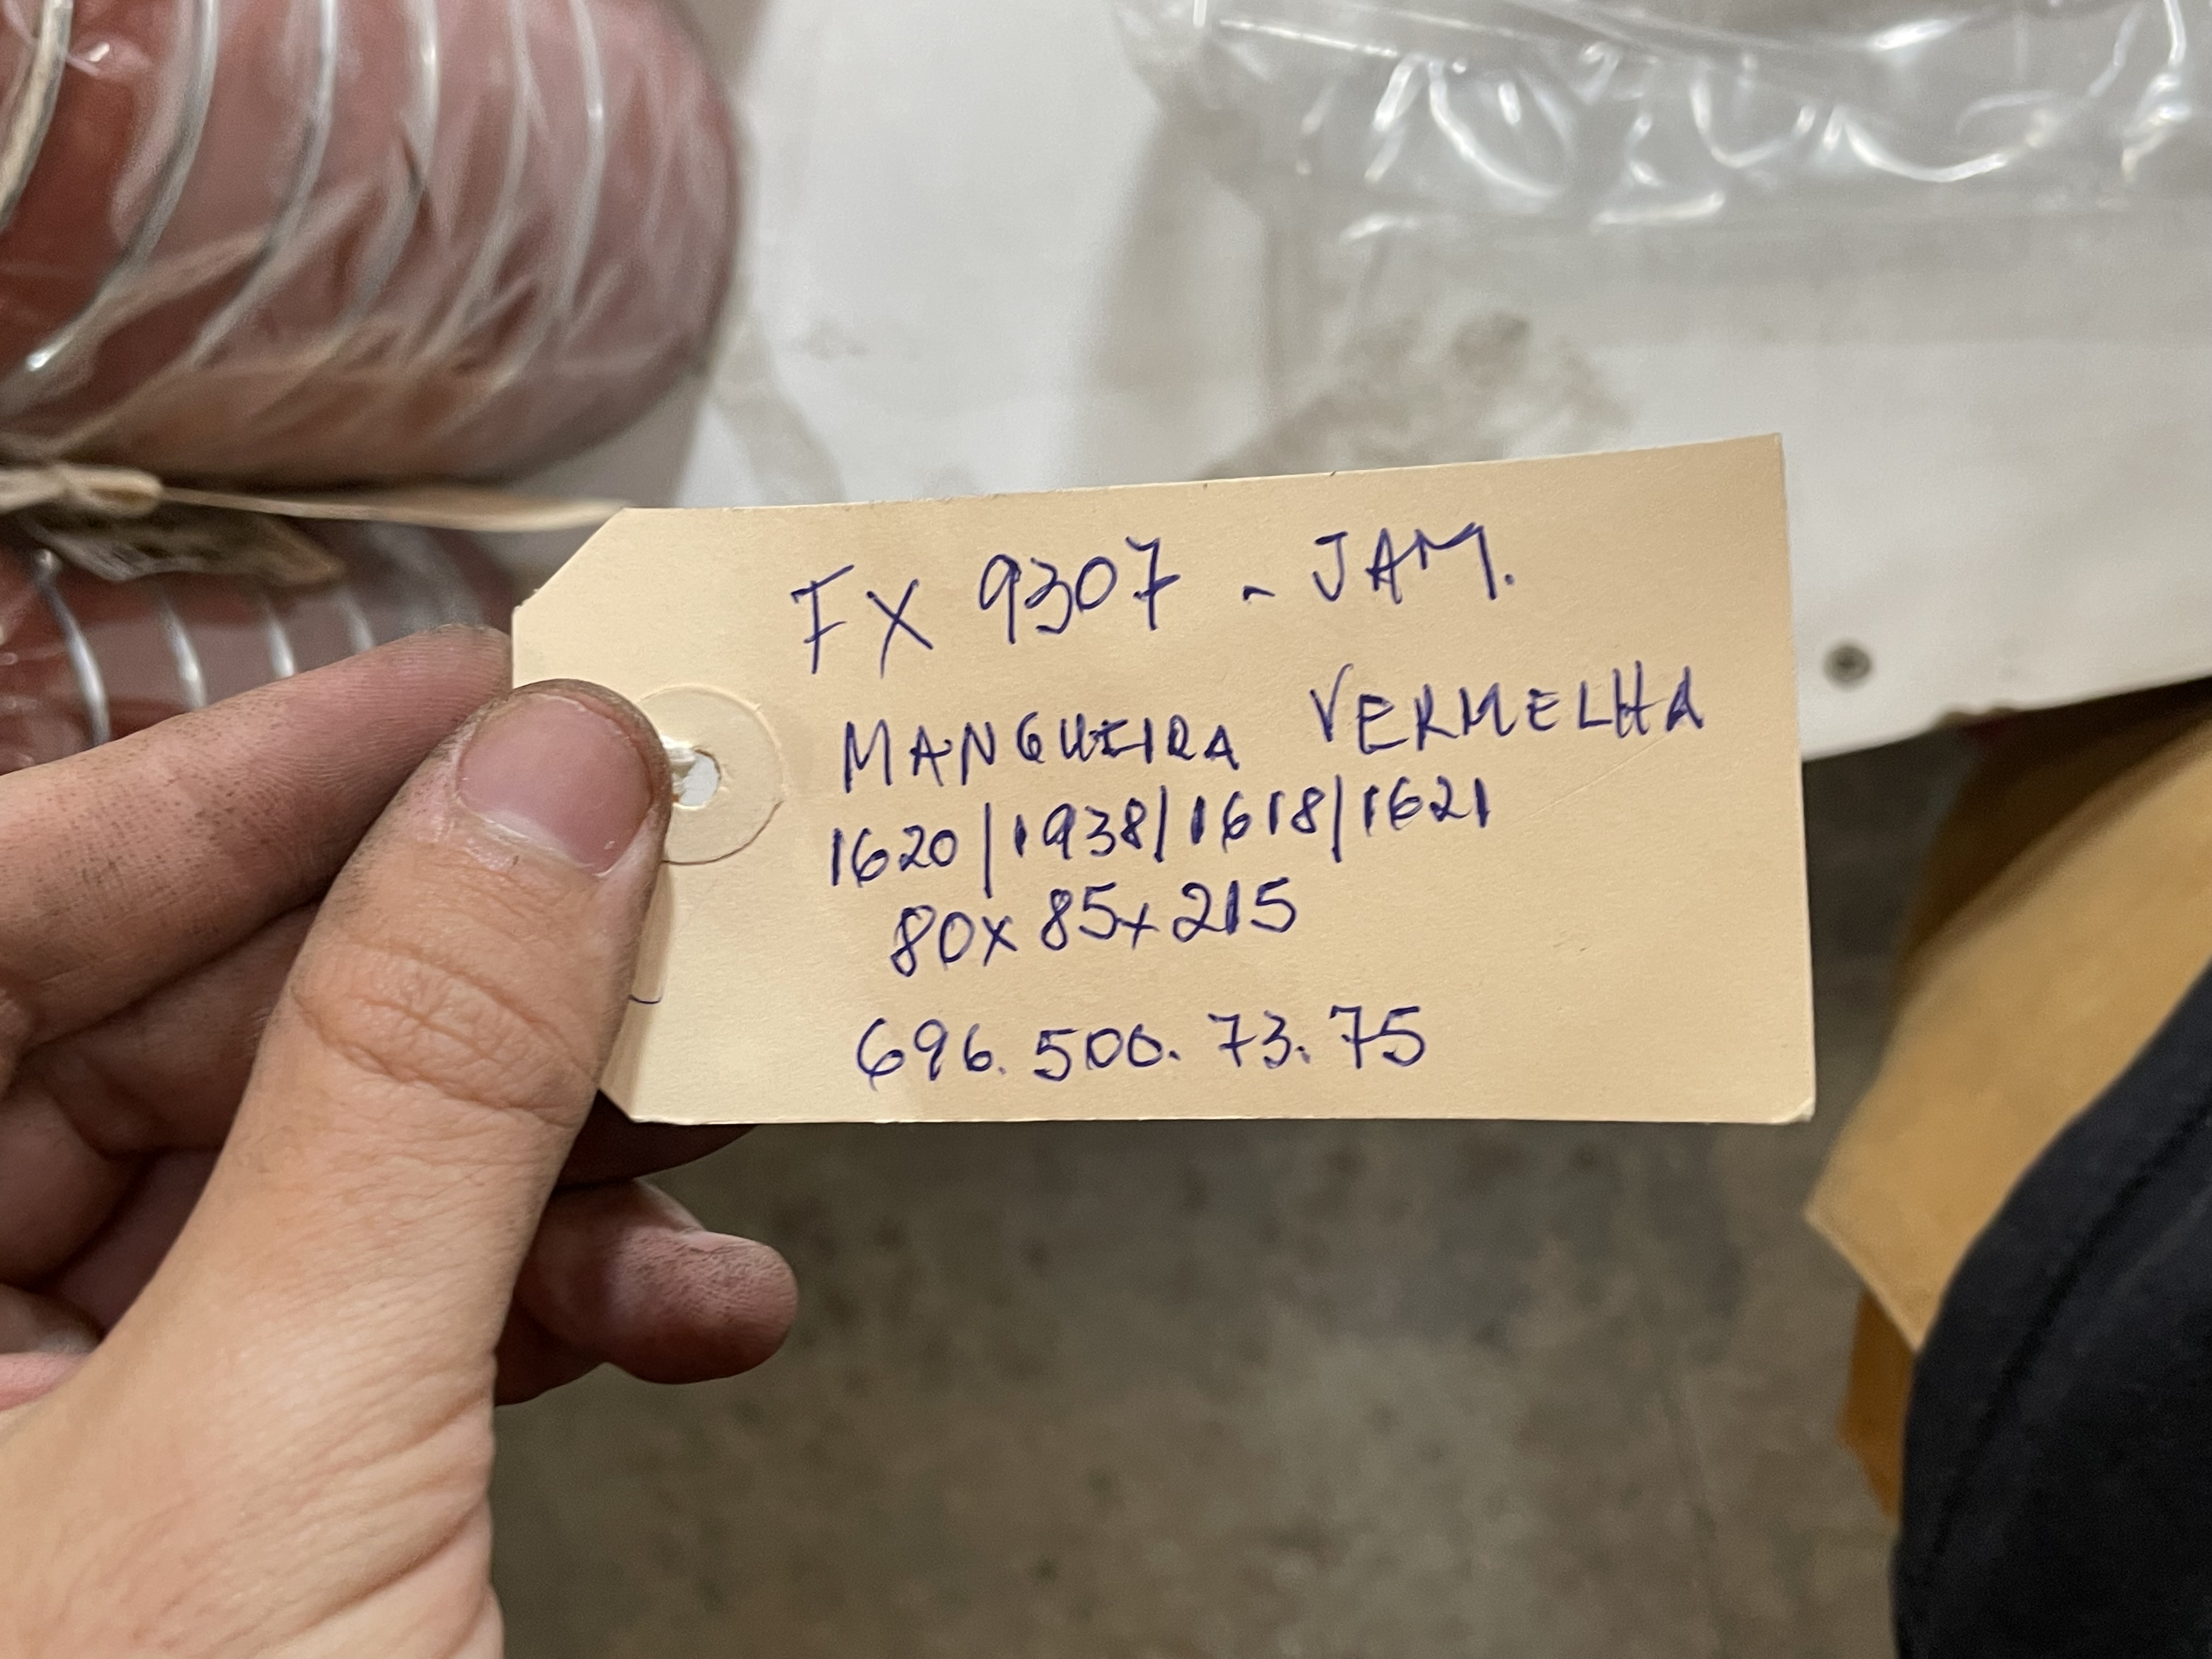 IX 9307 - JAM.
MANGUEIRA VERMELHA
1620/1938/1618/1621
80x85x215
696.500.73.75